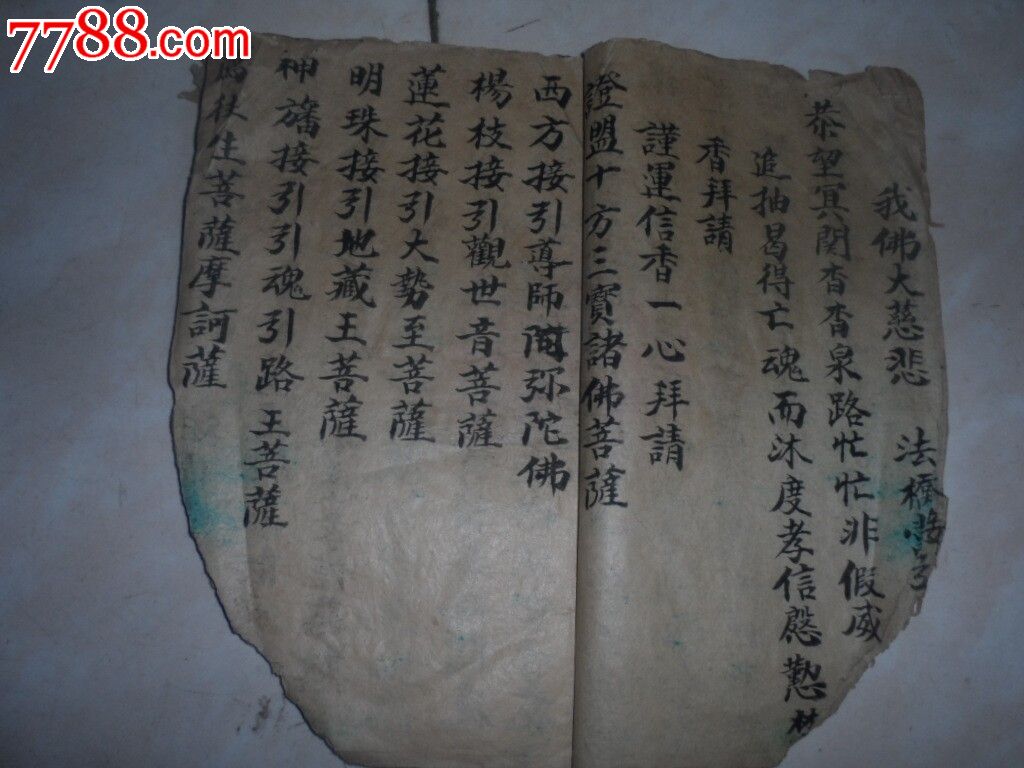 7788.com
我佛大慈悲 法橋
恭望冥関杳杳泉路忙忙非假威
追抽曷得亡魂而沐度孝信慇懃
香拜請
謹運信香一心拜請
證盟十方三寳諸佛菩薩
西方接引導師阿弥陀佛
楊枝接引觀世音菩薩
蓮花接引大勢至菩薩
明珠接引地藏王菩薩
神旛接引引魂引路王菩薩
生菩薩摩訶薩